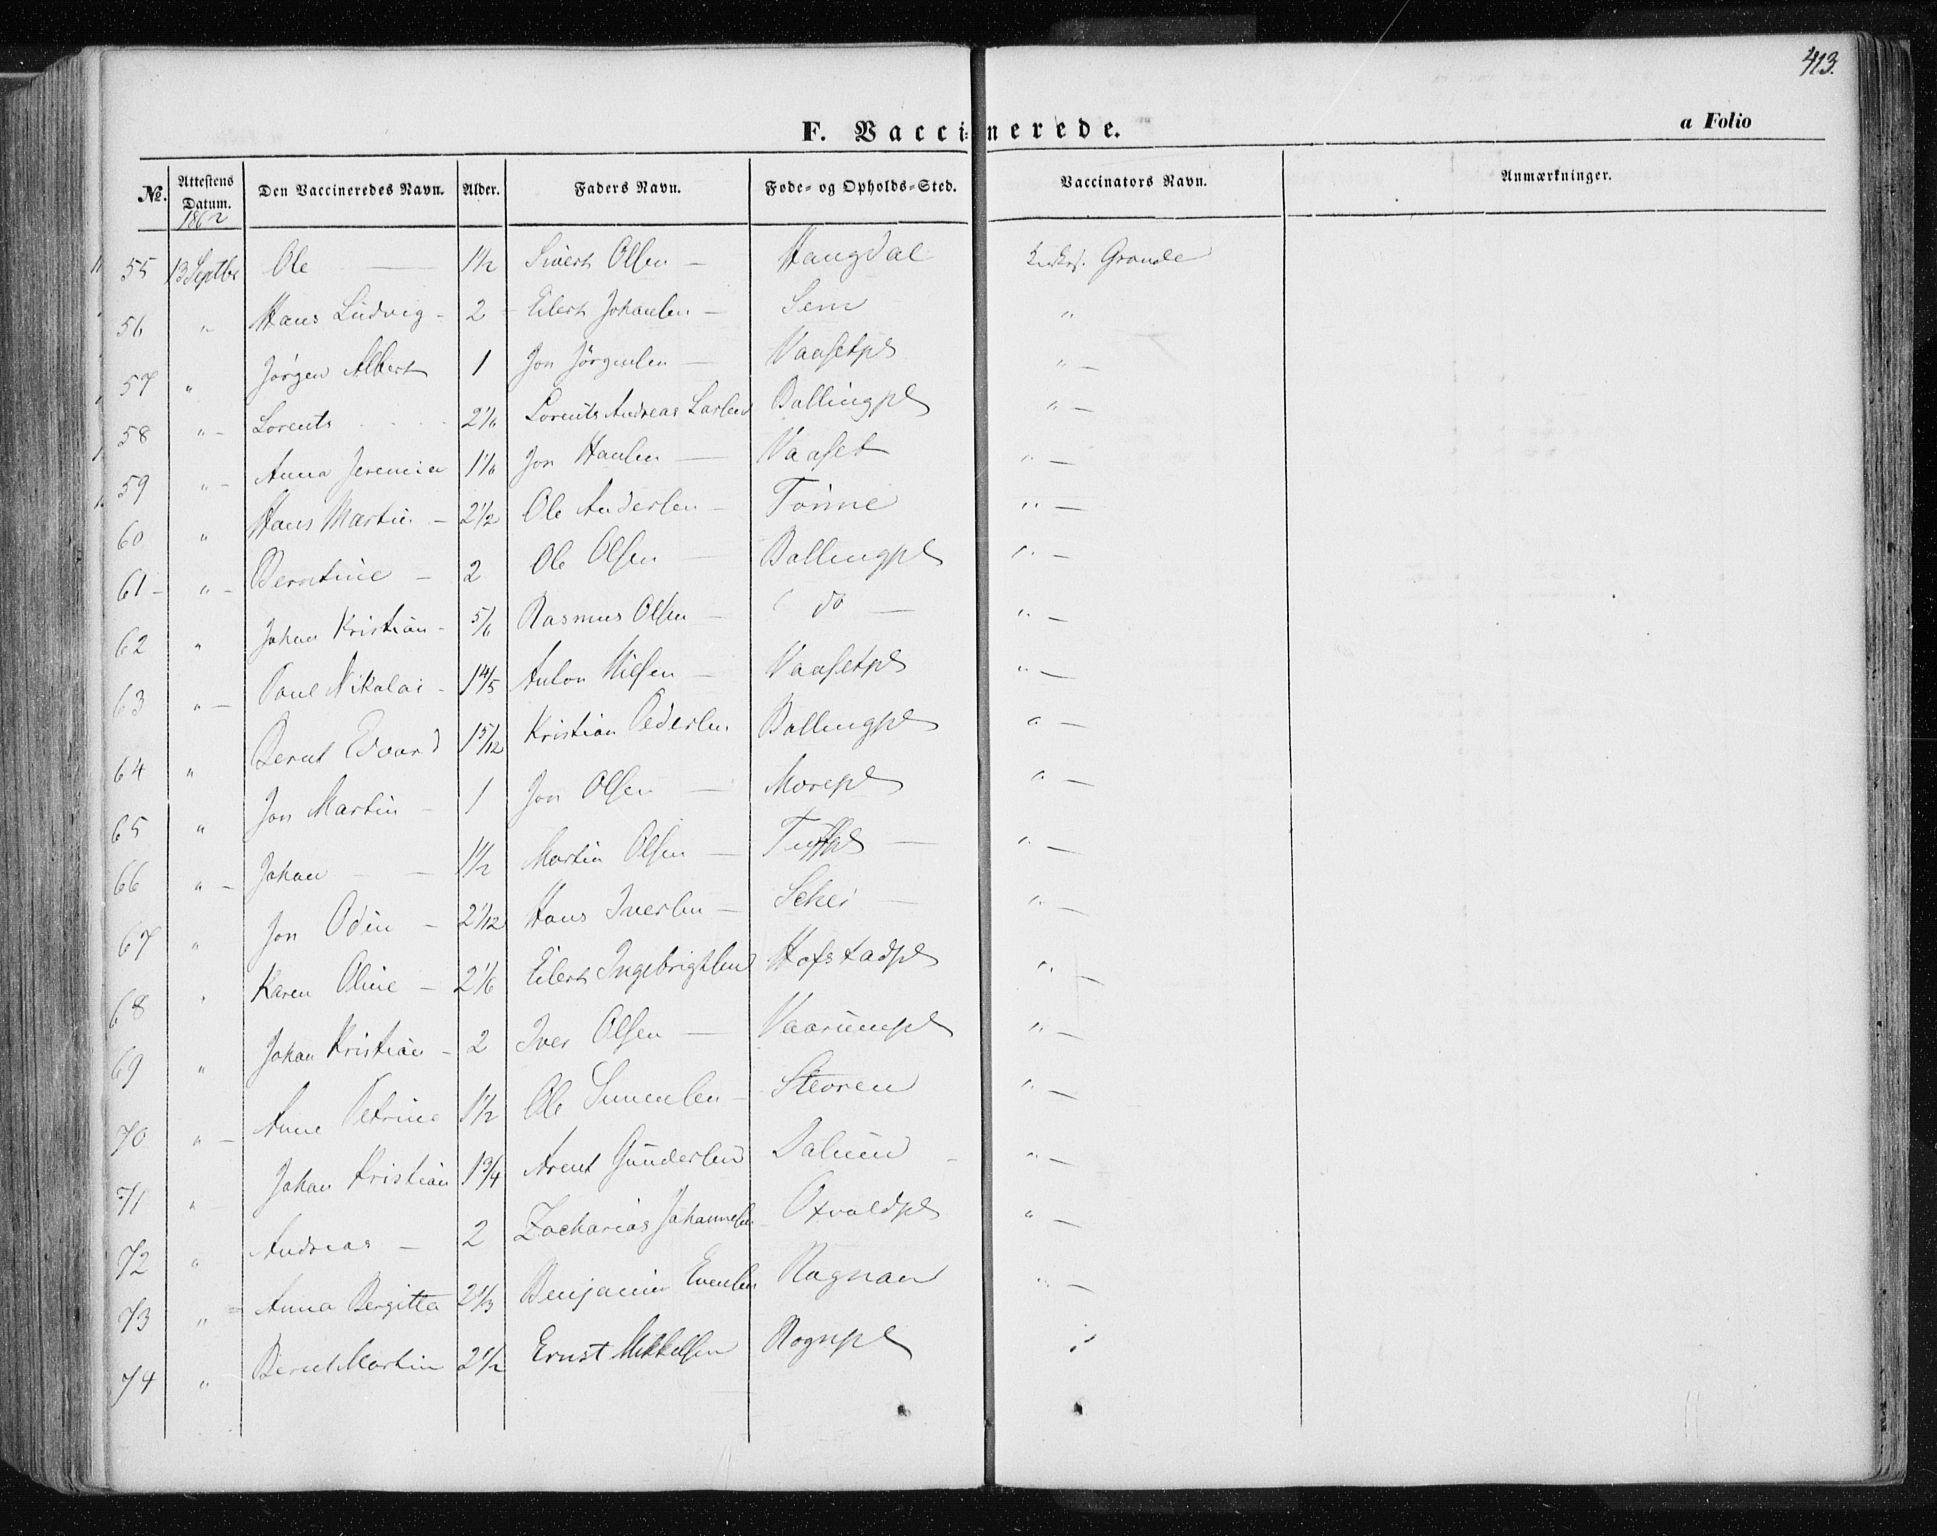 413.
F. Vaccinerede.
a Folio
No. Attestens Datum. Den Vaccineredes Navn. Alder. Faders Navn. Føde- og Opholds-Sted. Vaccinators Navn. Anmærkninger.
1862
55 13 Septbr Ole — 1 1/2 Sivert Olsen — Haugdal Grande
56 " Hans Ludvig - 2 - Eilert Johansen — Sem "
57 " Jørgen Albert 1 Jon Jörgensen — Vaasetpl "—
58 "- Lorents 2 1/6 Lorents Andreas Larsen Ballingpl "—
59 "- Anna Jeremia 1 1/6 Jon Hansen — Vaaset "—
60 " Hans Martin - 2 1/2 Ole Andersen - Tönne "—
61 - "- Berntine — 2 Ole Olsen — Ballingpl "—
62 " Johan Kristian - 5/6 Rasmus Olsen — do — "—
63 "- Paul Nikolai - 1 4/5 Anton Nilsen — Vaasetpl "—
64 " Bernt Edvard 1 5/12 Kristian Pedersen Ballingpl "—
65 " Jon Martin - 1 Jon Olsen — Morepl "—
66 "- Johan — 1 1/2 Martin Olsen — — "—
67 " Jon Odin - 2 1/12 Hans Iversen — Schei — "—
68 " Karen Oline — 2 1/6 Eilert Ingebrigtsen Hofstadpl "—
69 " Johan Kristian - 2 Iver Olsen — Vaarumpl "—
70 "- Anne Petrine 1 1/2 Ole Simensen — Steoren "—
71 "- Johan Kristian 1 3/4 Arent Gundersen Dalum - "—
72 " Andreas — 2 Zacharias Johannesen Oxvoldpl "—
73 " Anna Bergitta 2 1/3 Benjamin Evensen Rognan "—
74 " Bernt Martin 2 1/2 Ernst Mikkelsen Rognpl "